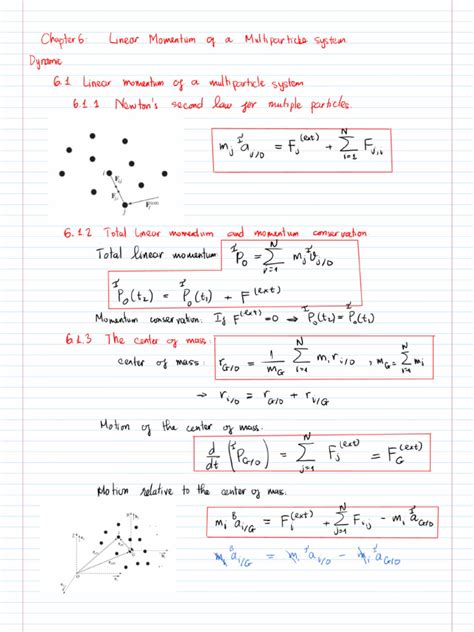 Chapter 6: Linear Momentum of a Multiparticle system
Dynamic
6.1 Linear momentum of a multiparticle system
6.1.1 Newton's second law for multiple particles.
m_j ᴵa_{j/O} = F_j^{(ext)} + Σ_{i=1}^{N} F_{j,i}
6.1.2 Total linear momentum and momentum conservation
Total linear momentum: ᴵP_O = Σ_{j=1}^{N} m_j ᴵv_{j/O}
ᴵP_O(t₂) = ᴵP_O(t₁) + F^{(ext)}
Momentum conservation: If F^{(ext)} = 0 ⇒ ᴵP_O(t₂) = ᴵP_O(t₁)
6.1.3 The center of mass:
center of mass: r_{G/O} = 1/m_G Σ_{i=1}^{N} m_i r_{i/O} , m_G = Σ_{i=1}^{N} m_i
→ r_{i/O} = r_{G/O} + r_{i/G}
Motion of the center of mass:
d/dt (ᴵP_{G/O}) = Σ_{j=1}^{N} F_j^{(ext)} = F_G^{(ext)}
Motion relative to the center of mas:
m_i ᴮa_{i/G} = F_i^{(ext)} + Σ_{j=1}^{N} F_{i,j} - m_i ᴵa_{G/O}
m_i ᴮa_{i/G} = m_i ᴵa_{i/O} - m_i ᴵa_{G/O}